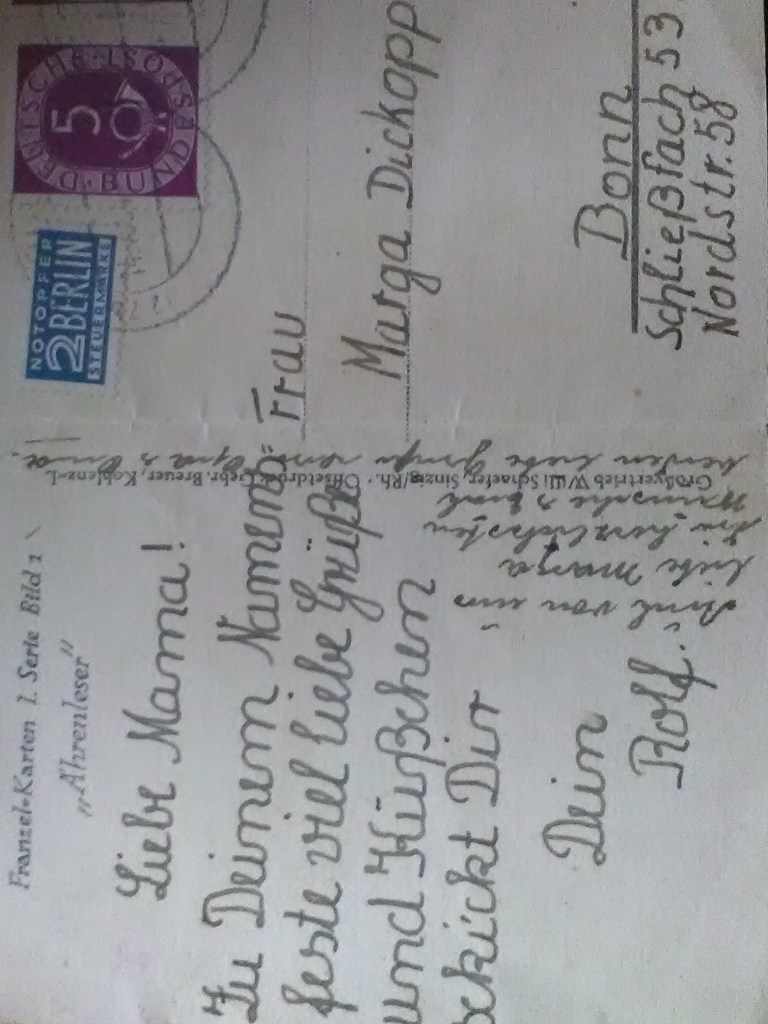 Franzel-Karten 1. Serie Bild 1
„Ährenleser"
Liebe Mama!
Zu Deinem Namens=
feste viel liebe Grüße
und Küßchen
schickt Dir
Dein
Rolf.
Auch von uns
liebe Marga
die herzlichsten
Wünsche
liebe Grüße
Opa
Großvertrieb Willi Schaefer, Sinzig/Rh. · Offsetdruck Gebr. Breuer, Koblenz-L.
NOTOPFER
2 BERLIN
STEUERMARKE
DEUTSCHE BUNDESPOST
5
Frau
Marga Dickopp
Bonn
Schließfach 53
Nordstr. 58